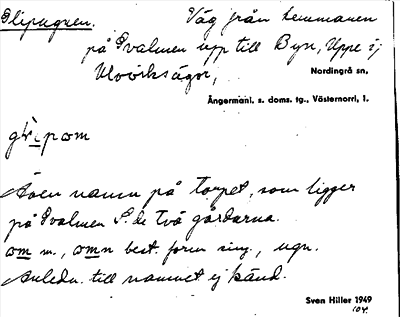 Slipugren. Väg från hemmanen
på Svalmen upp till Byn, Uppe i
Nordingrå sn,
Ångermanl. s. doms. tg., Västernorrl. l.
Även namn på torpet, som ligger
på Svalmen S. de två gårdarna.
om m., omn best. form sing., ugn.
Anledn. till namnet ej känd.
Sven Hiller 1949